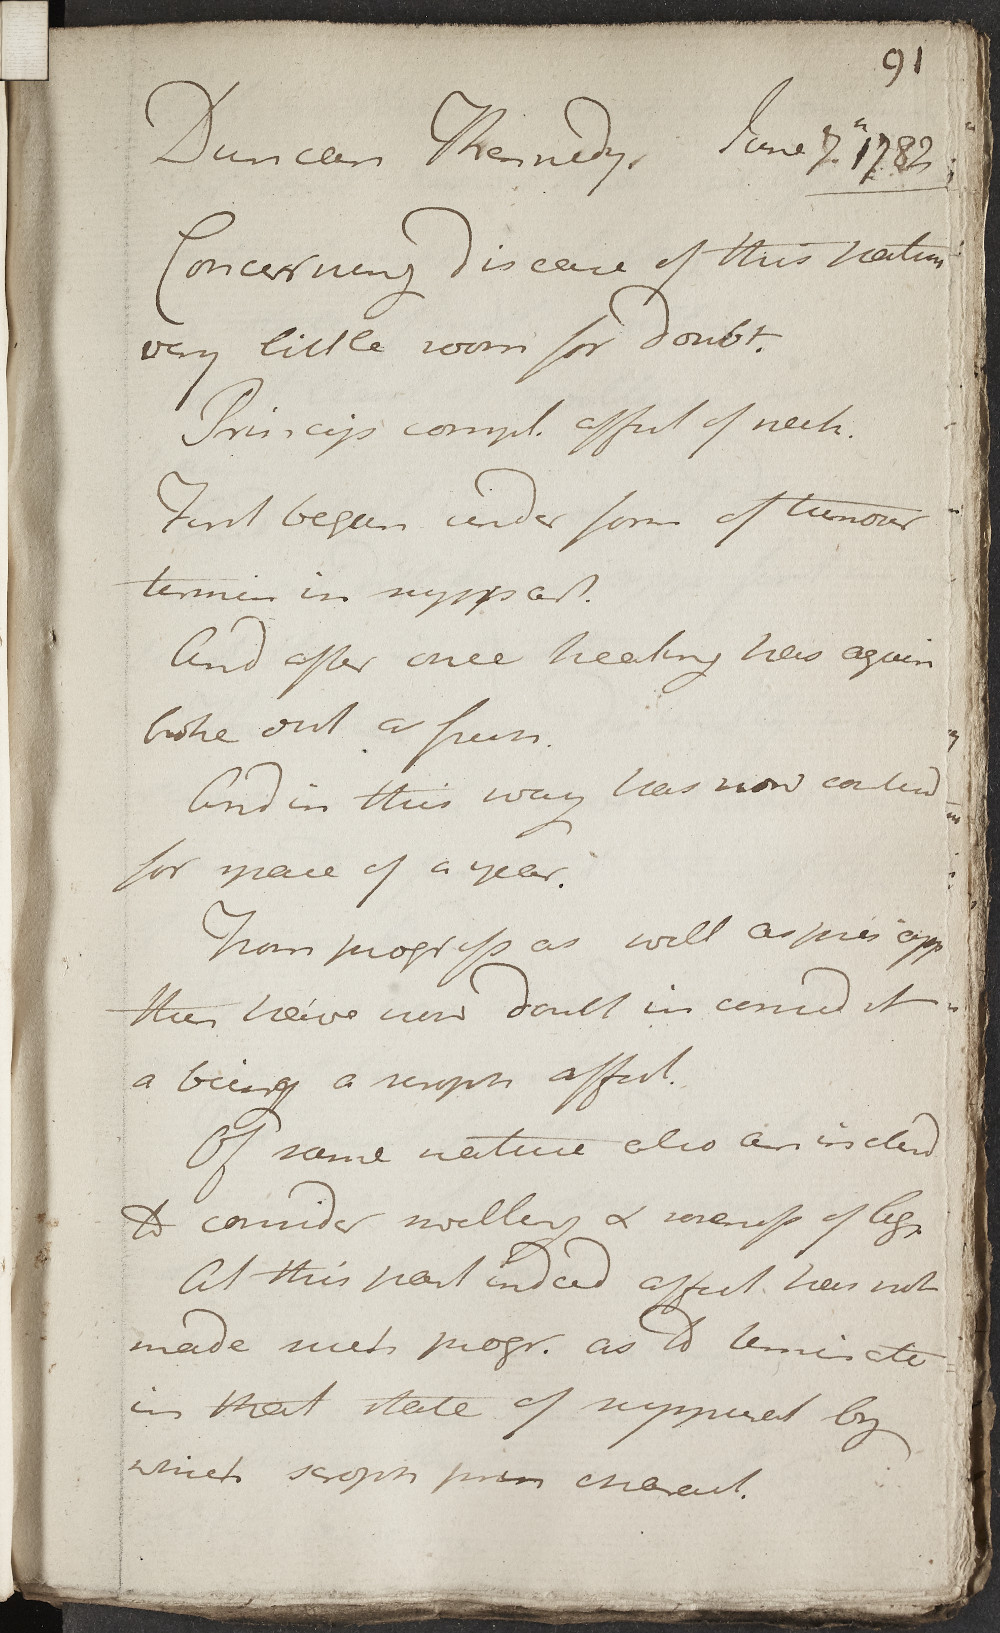 91
Duncan Kennedy. June 7.th 1782
Concerning disease of this nature
very little room for doubt.
Princip compl. affect of neck.
First began under form of tumour
termin in suppart.
And after once healing has again
broke out a fresh.
And in this way has now contind
for space of a year.
From progress as well as pres app
then have now doubt in consid it
a being a scroph affect.
Of same nature also am inclend
to consider swelling & soreness of legs
At this part indeed affect. has not
made such progr. as to terminate
in that state of suppurat by
which scroph prin charact.